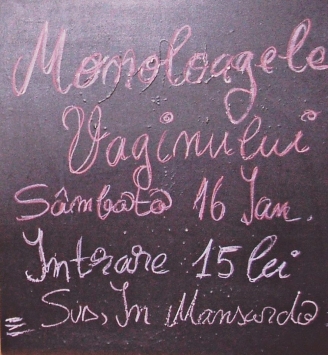 Monoloagele
Vaginului
Sâmbătă 16 Ian.
Intrare 15 lei
Sus, In Mansardă